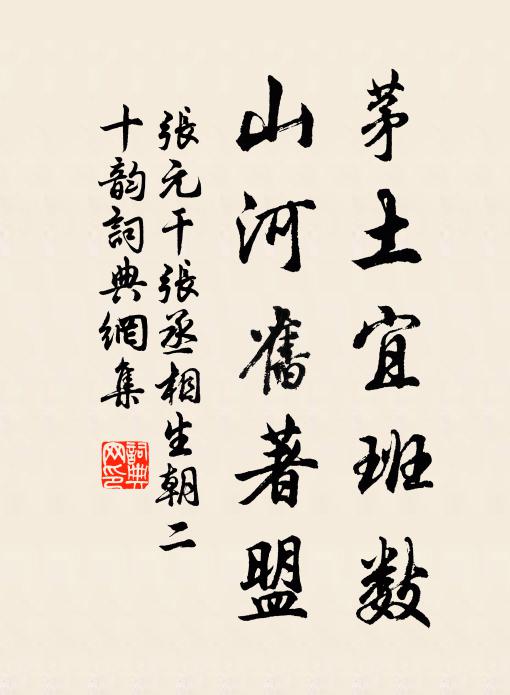 茅土宜班数
山河舊著盟
張元干張丞相生朝二
十韵詞典網集
詞典网印